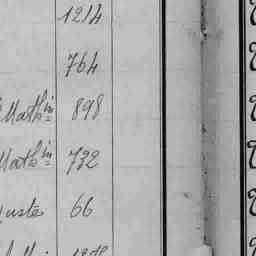 1214
764
Math in 898
Math in 732
uste 66